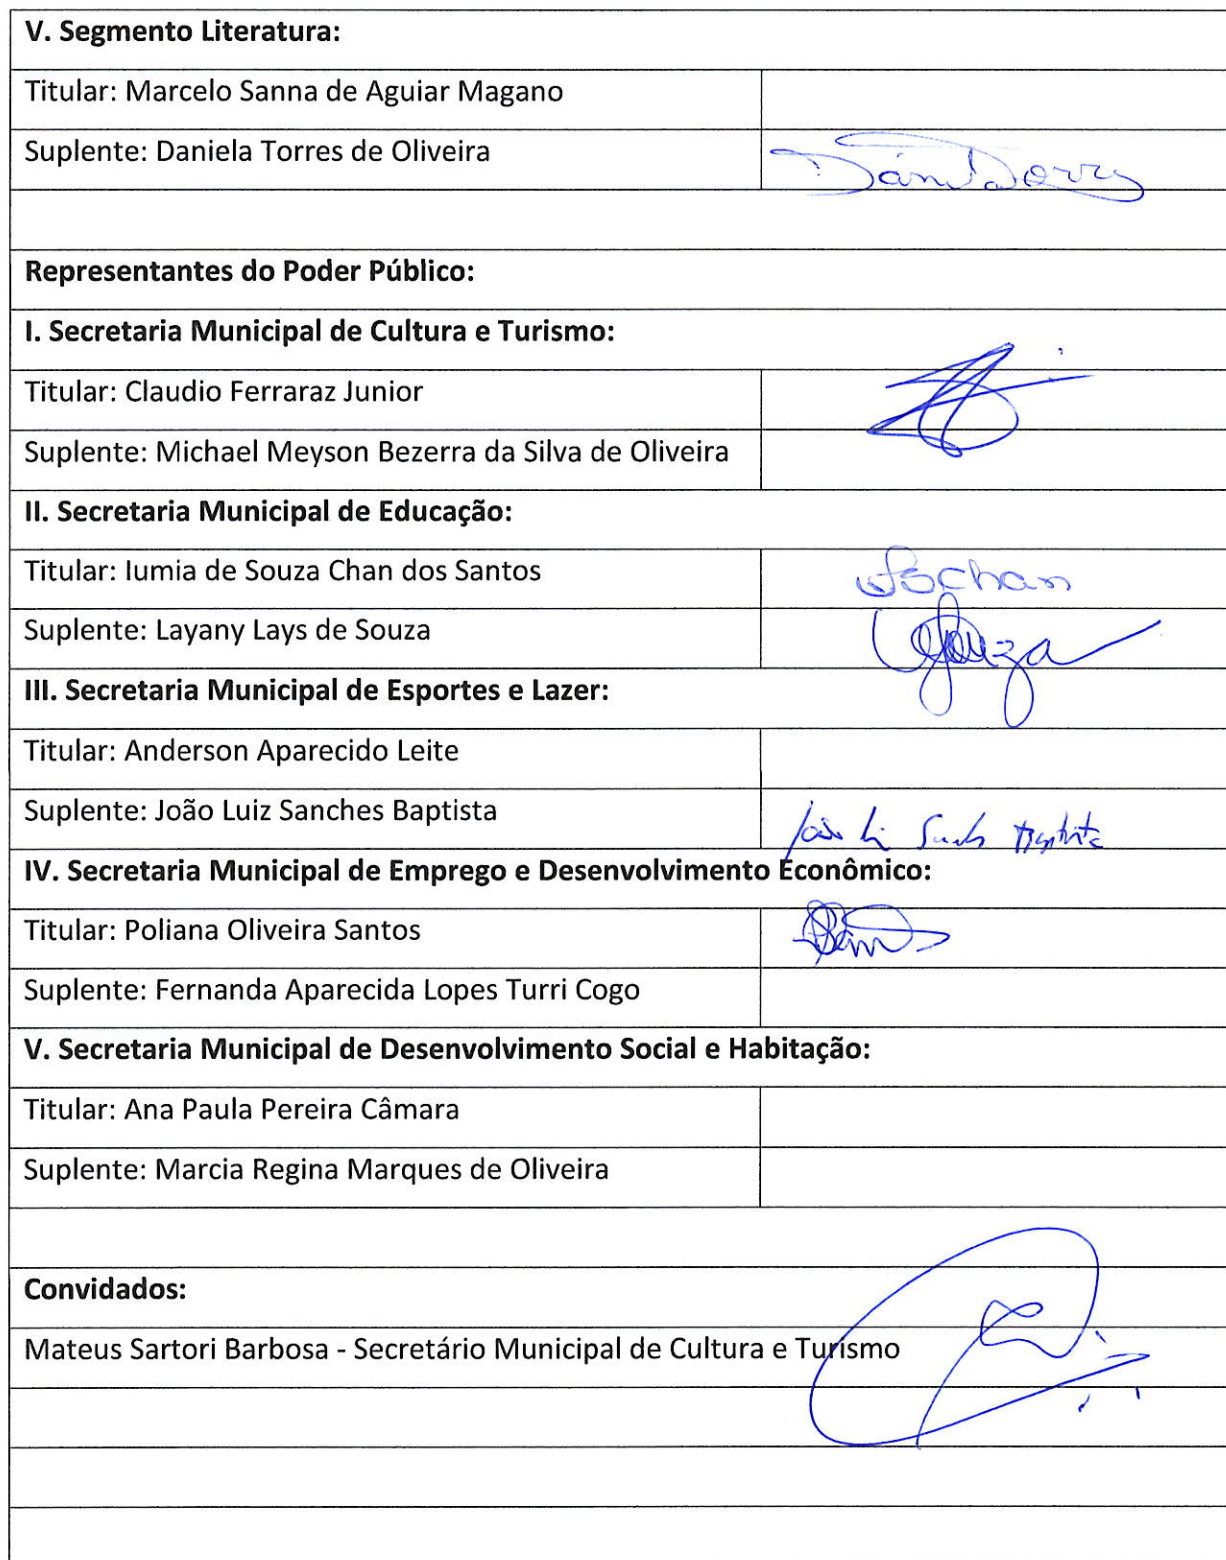 V. Segmento Literatura:
Titular: Marcelo Sanna de Aguiar Magano
Suplente: Daniela Torres de Oliveira
Representantes do Poder Público:
I. Secretaria Municipal de Cultura e Turismo:
Titular: Claudio Ferraraz Junior
Suplente: Michael Meyson Bezerra da Silva de Oliveira
II. Secretaria Municipal de Educação:
Titular: Iumia de Souza Chan dos Santos
Suplente: Layany Lays de Souza
III. Secretaria Municipal de Esportes e Lazer:
Titular: Anderson Aparecido Leite
Suplente: João Luiz Sanches Baptista
IV. Secretaria Municipal de Emprego e Desenvolvimento Econômico:
Titular: Poliana Oliveira Santos
Suplente: Fernanda Aparecida Lopes Turri Cogo
V. Secretaria Municipal de Desenvolvimento Social e Habitação:
Titular: Ana Paula Pereira Câmara
Suplente: Marcia Regina Marques de Oliveira
Convidados:
Mateus Sartori Barbosa - Secretário Municipal de Cultura e Turismo